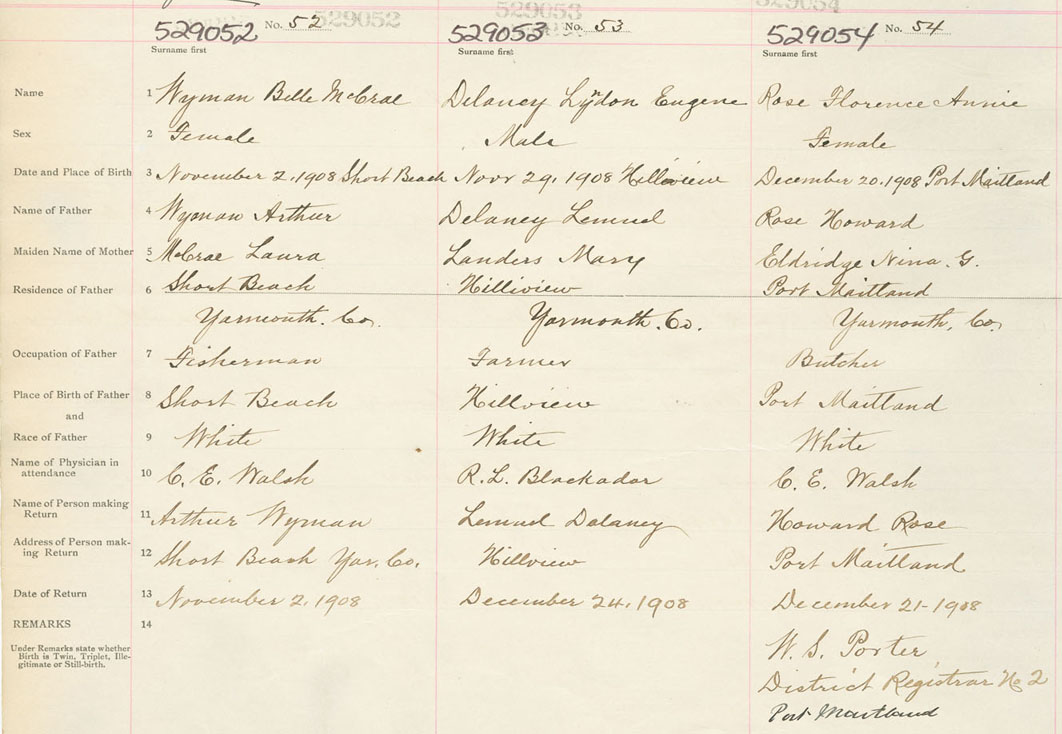 529052 529053 529054
529052 No. 52 529053 No. 53 529054 No. 54
Surname first Surname first Surname first
Name 1 Wyman Belle McCrae Delaney Lyndon Eugene Rose Florence Annie
Sex 2 Female Male Female
Date and Place of Birth 3 November 2, 1908 Short Beach Novr 29, 1908 Hillview December 20. 1908 Port Maitland
Name of Father 4 Wyman Arthur Delaney Lemuel Rose Howard
Maiden Name of Mother 5 McCrae Laura Landers Mary Eldridge Nina. G.
Residence of Father 6 Short Beach Hillview Port Maitland
Yarmouth. Co. Yarmouth. Co. Yarmouth. Co,
Occupation of Father 7 Fisherman Farmer Butcher
Place of Birth of Father 8 Short Beach Hillview Port Maitland
and
Race of Father 9 White White White
Name of Physician in
attendance 10 C. E. Walsh R. L. Blackadar C. E. Walsh
Name of Person making
Return 11 Arthur Wyman Lemuel Delaney Howard Rose
Address of Person mak-
ing Return 12 Short Beach Yar. Co. Hillview Port Maitland
Date of Return 13 November 2, 1908 December 24, 1908 December 21-1908
REMARKS 14
Under Remarks state whether
Birth is Twin, Triplet, Ille-
gitimate or Still-birth.
W. S. Porter
District Registrar No 2
Port Maitland